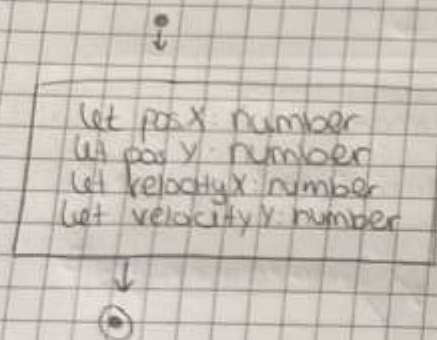 let posX: number
let posY: number
let velocityX: number
let velocityY: number